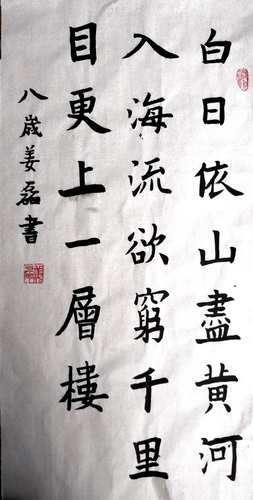 白日依山盡黃河
入海流欲窮千里
目更上一層樓
八歲姜磊書